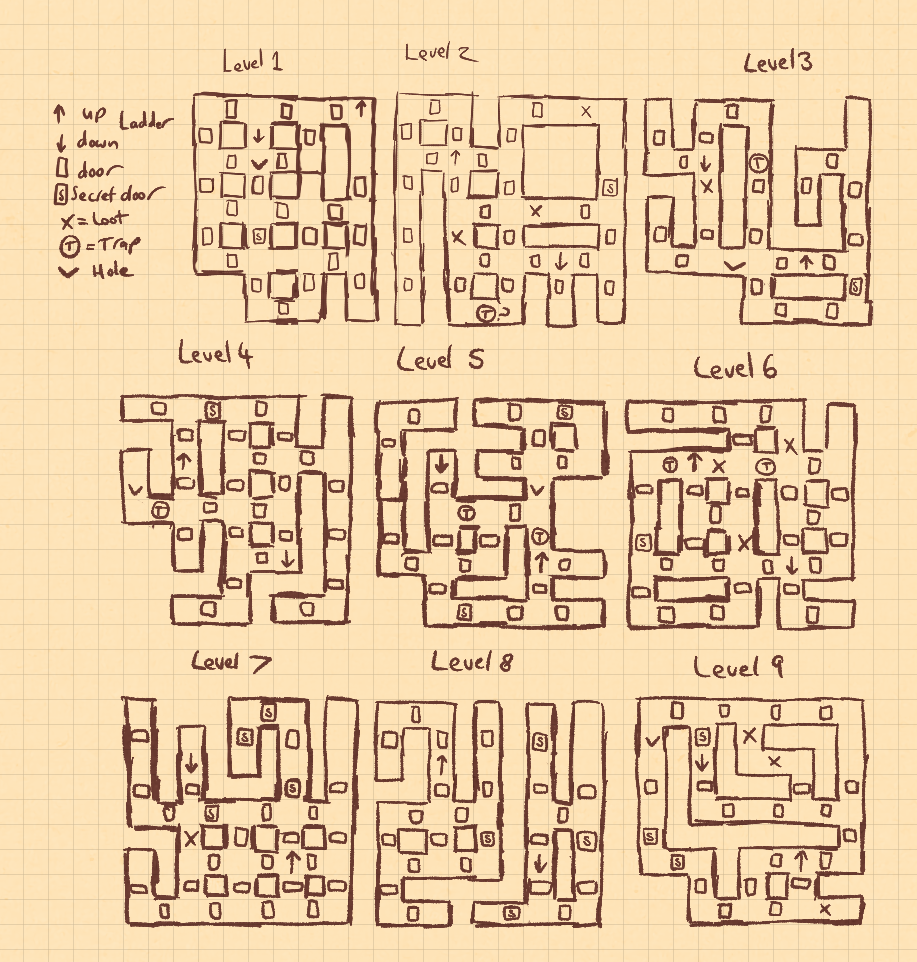 Level 1
Level 2
Level 3
↑ up
Ladder
↓ down
door
S Secret door
X = Loot
T = Trap
Hole
S
S
T?
T
S
Level 4
Level 5
Level 6
S
T
S
T
T
S
T
T
S
Level 7
Level 8
Level 9
S
S
S
S
S
S
S
S
S
S
S